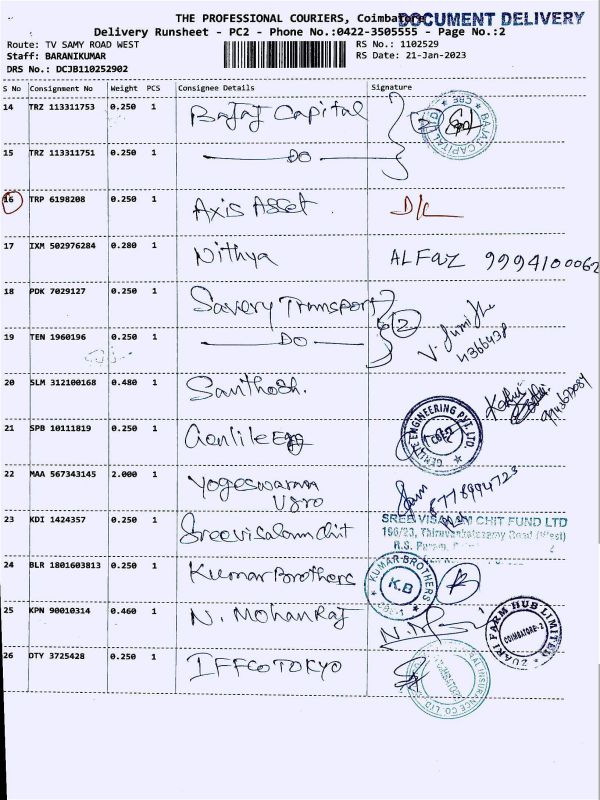 THE PROFESSIONAL COURIERS, Coimbatore
DOCUMENT DELIVERY
Delivery Runsheet - PC2 - Phone No.:0422-3505555 - Page No.:2
Route: TV SAMY ROAD WEST RS No.: 1102529
Staff: BARANIKUMAR RS Date: 21-Jan-2023
DRS No.: DCJB110252902
S No Consignment No Weight PCS Consignee Details Signature
14 TRZ 113311753 0.250 1 Bajaj Capital 2
BAJAJ CAPITAL
CBE
15 TRZ 113311751 0.250 1 DO
16 TRP 6198208 0.250 1 Axis Asset D/L
17 IXM 502976284 0.280 1 Nithya ALFaz 9994100062
18 PDK 7029127 0.250 1 Savery Transport 2
19 TEN 1960196 0.250 1 DO
20 SLM 312100168 0.480 1 Santhosh.
21 SPB 10111819 0.250 1 Genlite Engg
GENLITE ENGINEERING PVT. LTD.
22 MAA 567343145 2.000 1 Yogeswaran
23 KDI 1424357 0.250 1 Sreevisalam chit
SREE VISALAM CHIT FUND LTD
196/23, Thiruvenkatasamy Road (West)
R.S. Puram,
24 BLR 1801603813 0.250 1 Kumar Brothers
KUMAR BROTHERS
K.B
25 KPN 90010314 0.460 1 N. Mohanraj
ZUARI FARM HUB LIMITED
COIMBATORE-2
26 DTY 3725428 0.250 1 IFFCO TOKYO
INSURANCE CO. LTD